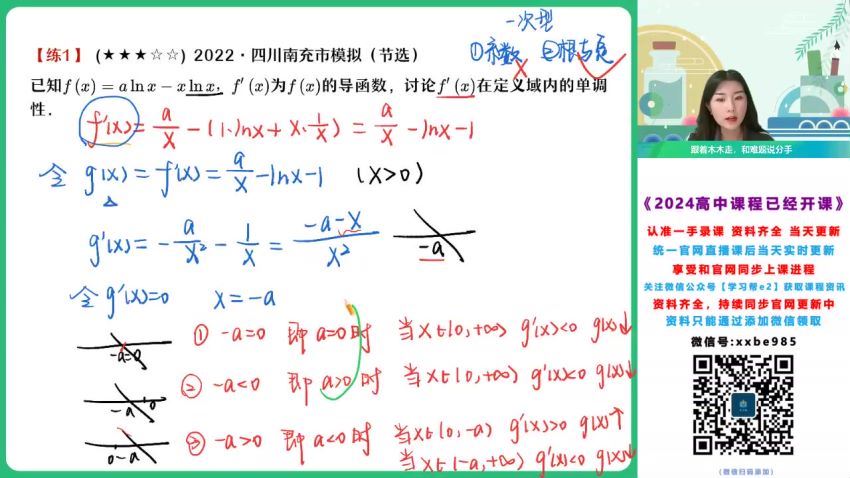 一次型
①系数 ②根与区
【练1】 (★★★☆☆) 2022·四川南充市模拟（节选）
已知f(x)=a ln x−x ln x，f′(x)为f(x)的导函数，讨论f′(x)在定义域内的单调
性.
f'(x)=a/x-(1·lnx+x·1/x)=a/x-lnx-1
令 g(x)=f'(x)=a/x-lnx-1 (x>0)
g'(x)=-a/x²-1/x=(-a-x)/x²
-a
令g'(x)=0 x=-a
-a=0
① -a=0 即 a=0时 当x∈(0,+∞) g'(x)<0 g(x)↓
-a 0
② -a<0 即 a>0时 当x∈(0,+∞) g'(x)<0 g(x)↓
0 -a
③ -a>0 即 a<0时 当x∈(0,-a) g'(x)>0 g(x)↑
当x∈(-a,+∞) g'(x)<0 g(x)↓
跟着木木走，和难题说分手
《2024高中课程已经开课》
认准一手录课 资料齐全 当天更新
统一官网直播课后当天实时更新
享受和官网同步上课进程
关注微信公众号【学习帮e2】获取课程资讯
资料齐全，持续同步官网更新中
资料只能通过添加微信领取
微信号:xxbe985
(微信扫码添加)